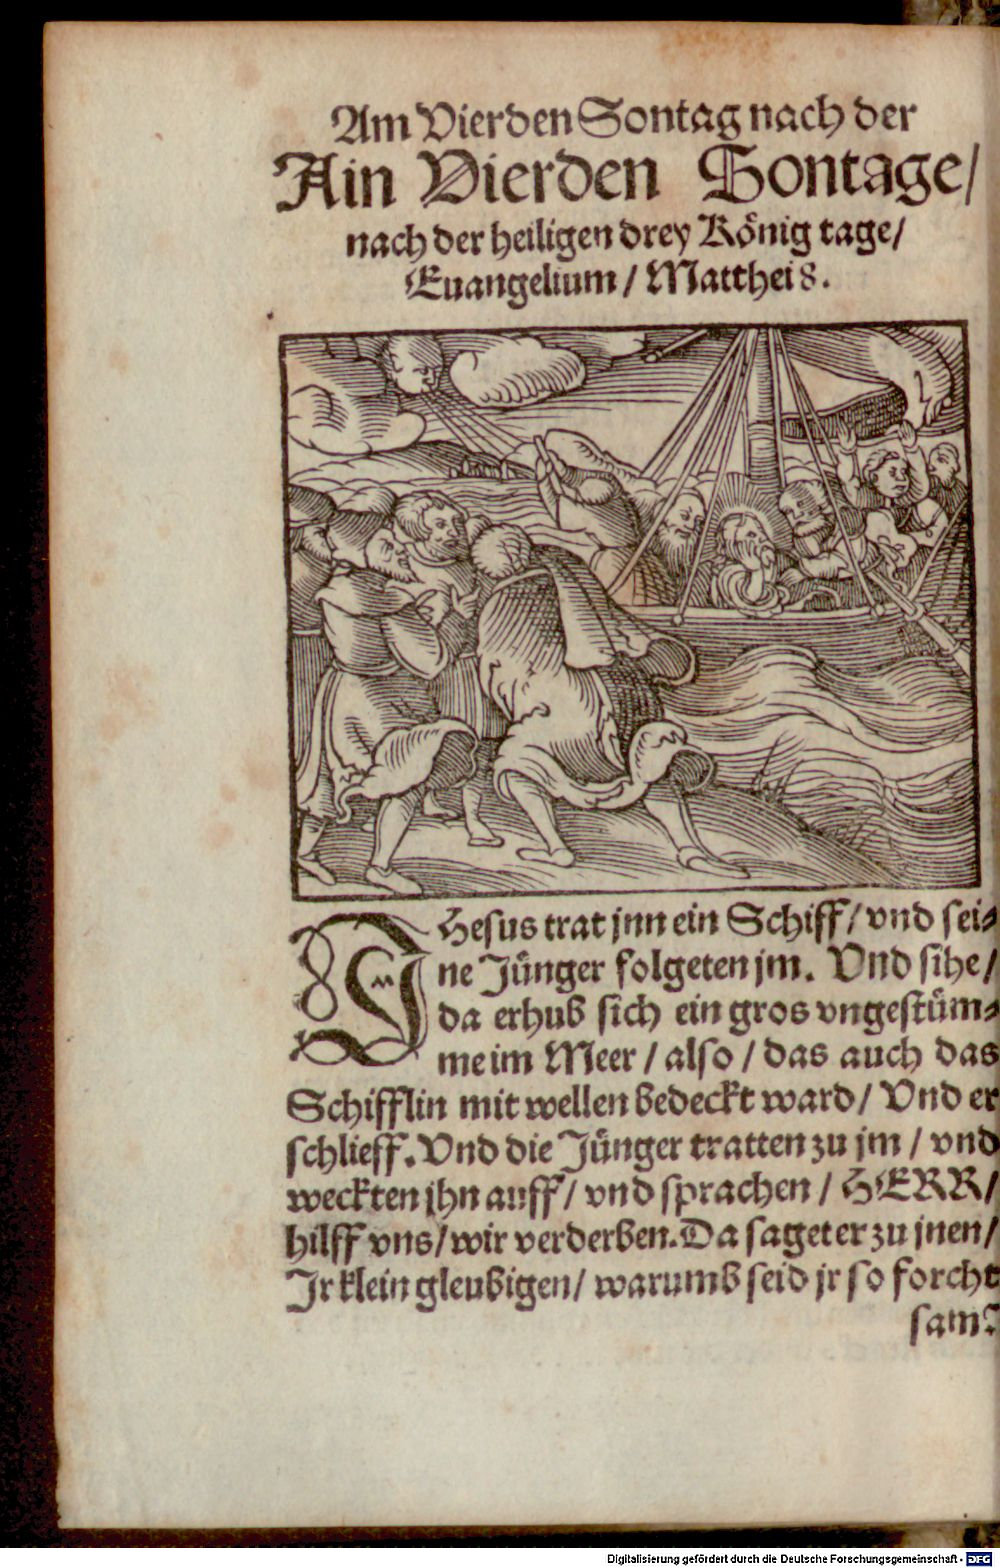 Am Vierden Sontag nach der
Ain Vierden Sontage/
nach der heiligen drey König tage/
Euangelium / Matthei 8.
IHesus trat jnn ein Schiff/ vnd sei⸗
ne Jünger folgeten jm. Vnd sihe/
da erhub sich ein gros vngestüm⸗
me im Meer / also / das auch das
Schifflin mit wellen bedeckt ward/ Vnd er
schlieff. Vnd die Jünger tratten zu jm / vnd
weckten jhn auff/ vnd sprachen / HERR/
hilff vns/ wir verderben. Da saget er zu jnen/
Jr klein gleubigen/ warumb seid jr so forcht
sam?
Digitalisierung gefördert durch die Deutsche Forschungsgemeinschaft - DFG